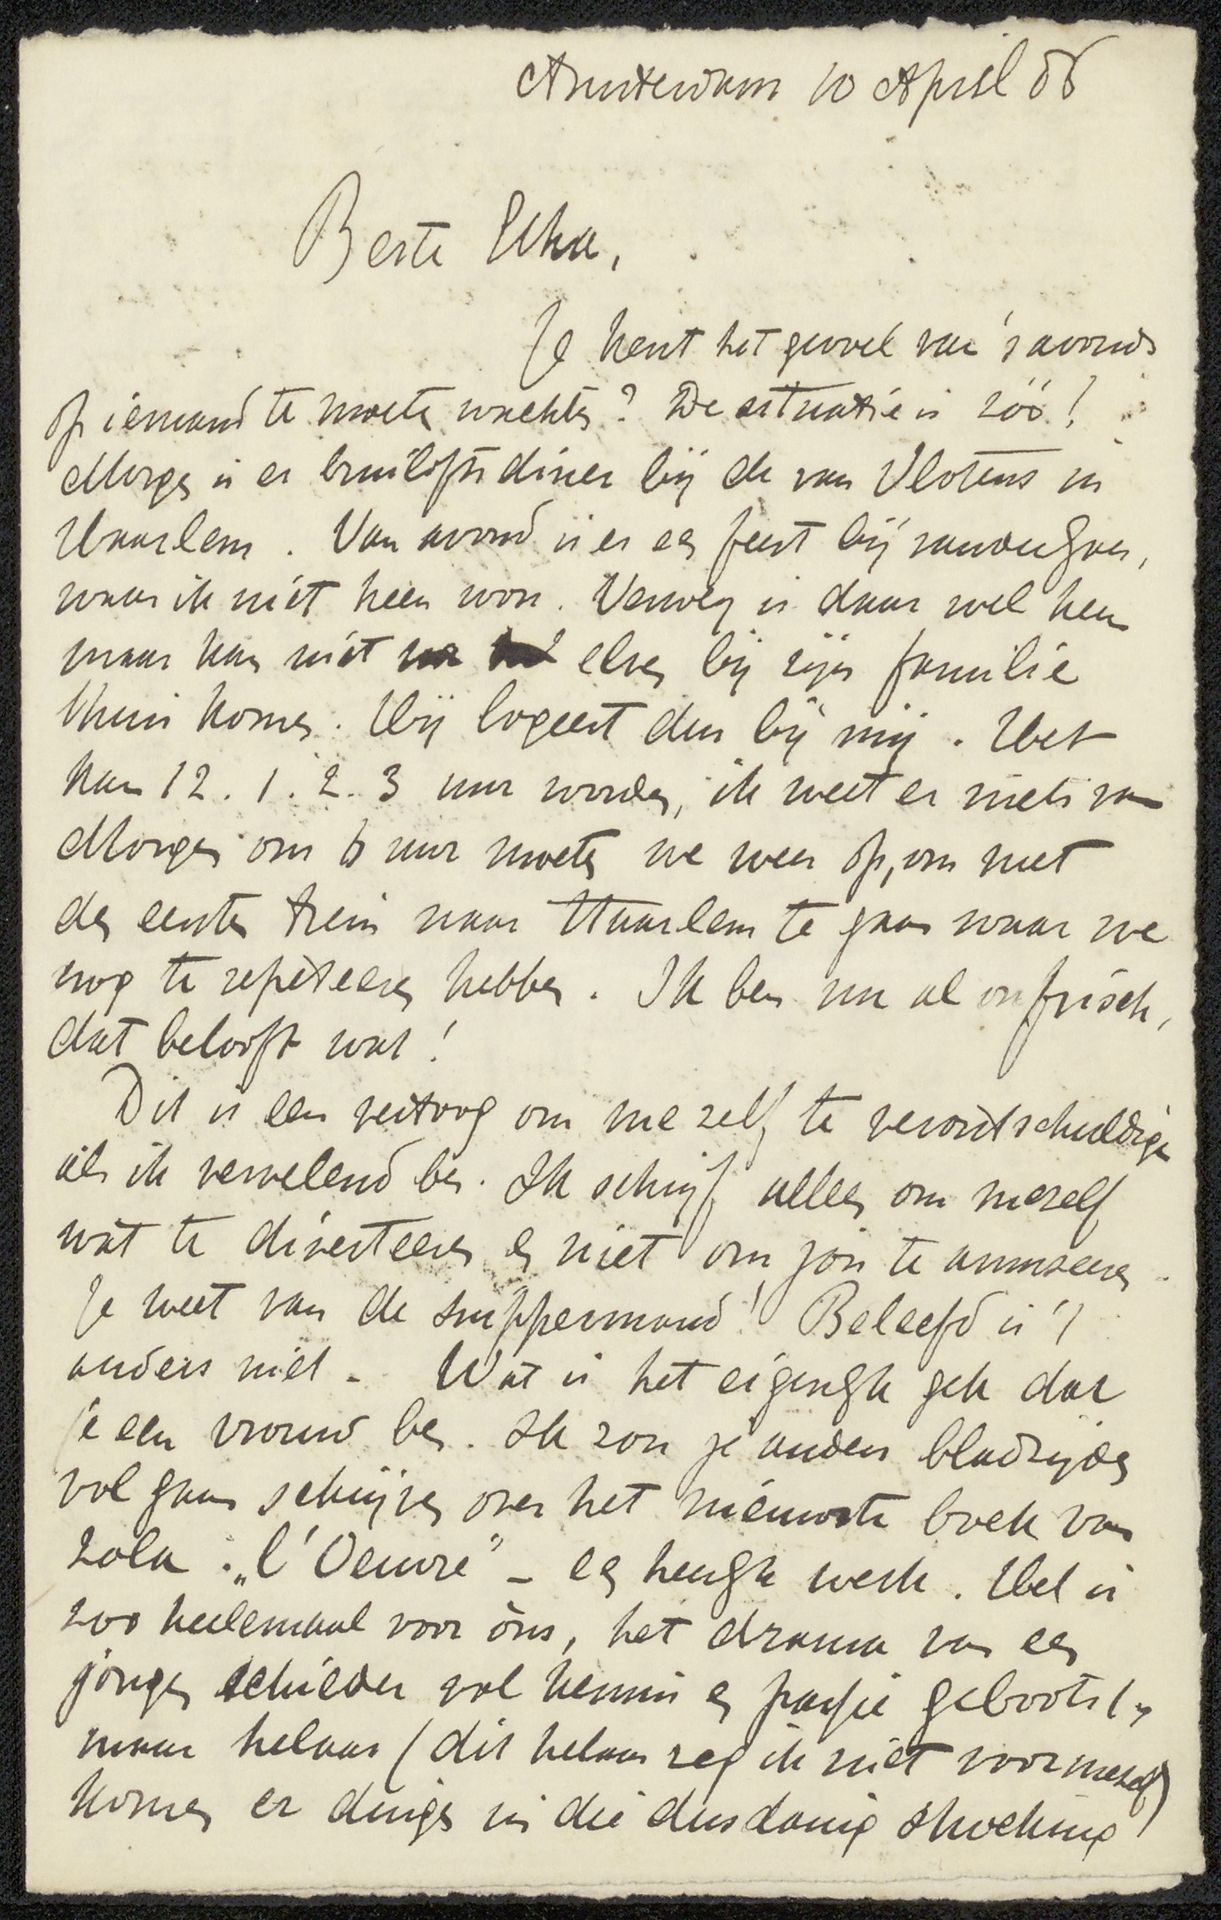 Amsterdam 10 April 86
Beste Etha,
Je kent het gevoel van 's avonds
op iemand te moeten wachten? De situatie is zóó!
Morgen is er bruiloftsdiner bij de van Vlotens in
Haarlem. Van avond is er een feest bij
waar ik niet heen wou. Verwey is daar wel heen
maar kan niet elven bij zijn familie
thuis komen. Hij logeert dus bij mij. Het
kan 12. 1. 2. 3 uur worden, ik weet er niets van
Morgen om 6 uur moeten we weer op, om met
den eersten trein naar Haarlem te gaan waar we
nog te repeteeren hebben. Ik ben nu al onfrisch,
dat belooft wat!
Dit is een vertoog om me zelf te verontschuldigen
als ik vervelend ben. Ik schrijf alleen om mezelf
wat te diverteeren en niet om jou te amuseeren.
Je weet van de snippermand! Beleefd is 't
anders niet. Wat is het eigenglk gek dat
je een vrouw ben. Ik zou je anders bladzijden
vol gaan schrijven over het nieuwste boek van
Zola. „l'Oeuvre" – een heuglk werk. Het is
zoo heelemaal voor óns, het drama van een
jongen schilder vol kennis en passie
maar helaas (dit helaas zeg ik niet voor mezelf)
komen er dingen in die dusdanig shocking